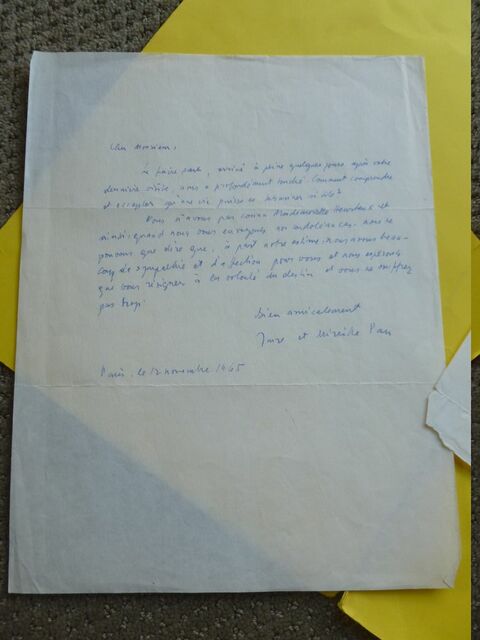 Cher Monsieur,
Le faire part, arrivé à peine quelques jours après votre
dernière visite, nous a profondément touché. Comment comprendre
et accepter qu'une vie puisse se terminer si tôt?
Nous n'avons pas connu Mademoiselle et
ainsi, quand nous vous envoyons nos condoléances, nous ne
pouvons que dire que, à part notre estime, nous avons beau-
coup de sympathie et d'affection pour vous et nous espérons
que vous résignez à la volonté du destin et vous ne souffrez
pas trop.
Bien amicalement
et Mireille
Paris, le 12 novembre 1965